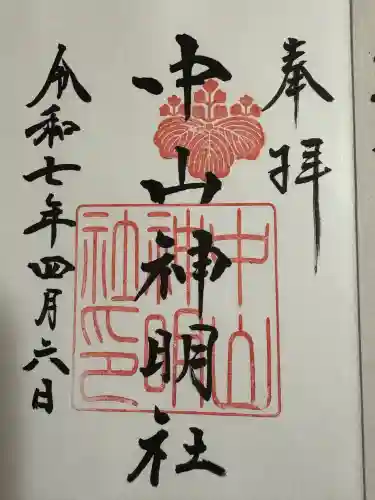 奉拝
中山神明社
令和七年四月六日
中山
神明
社印